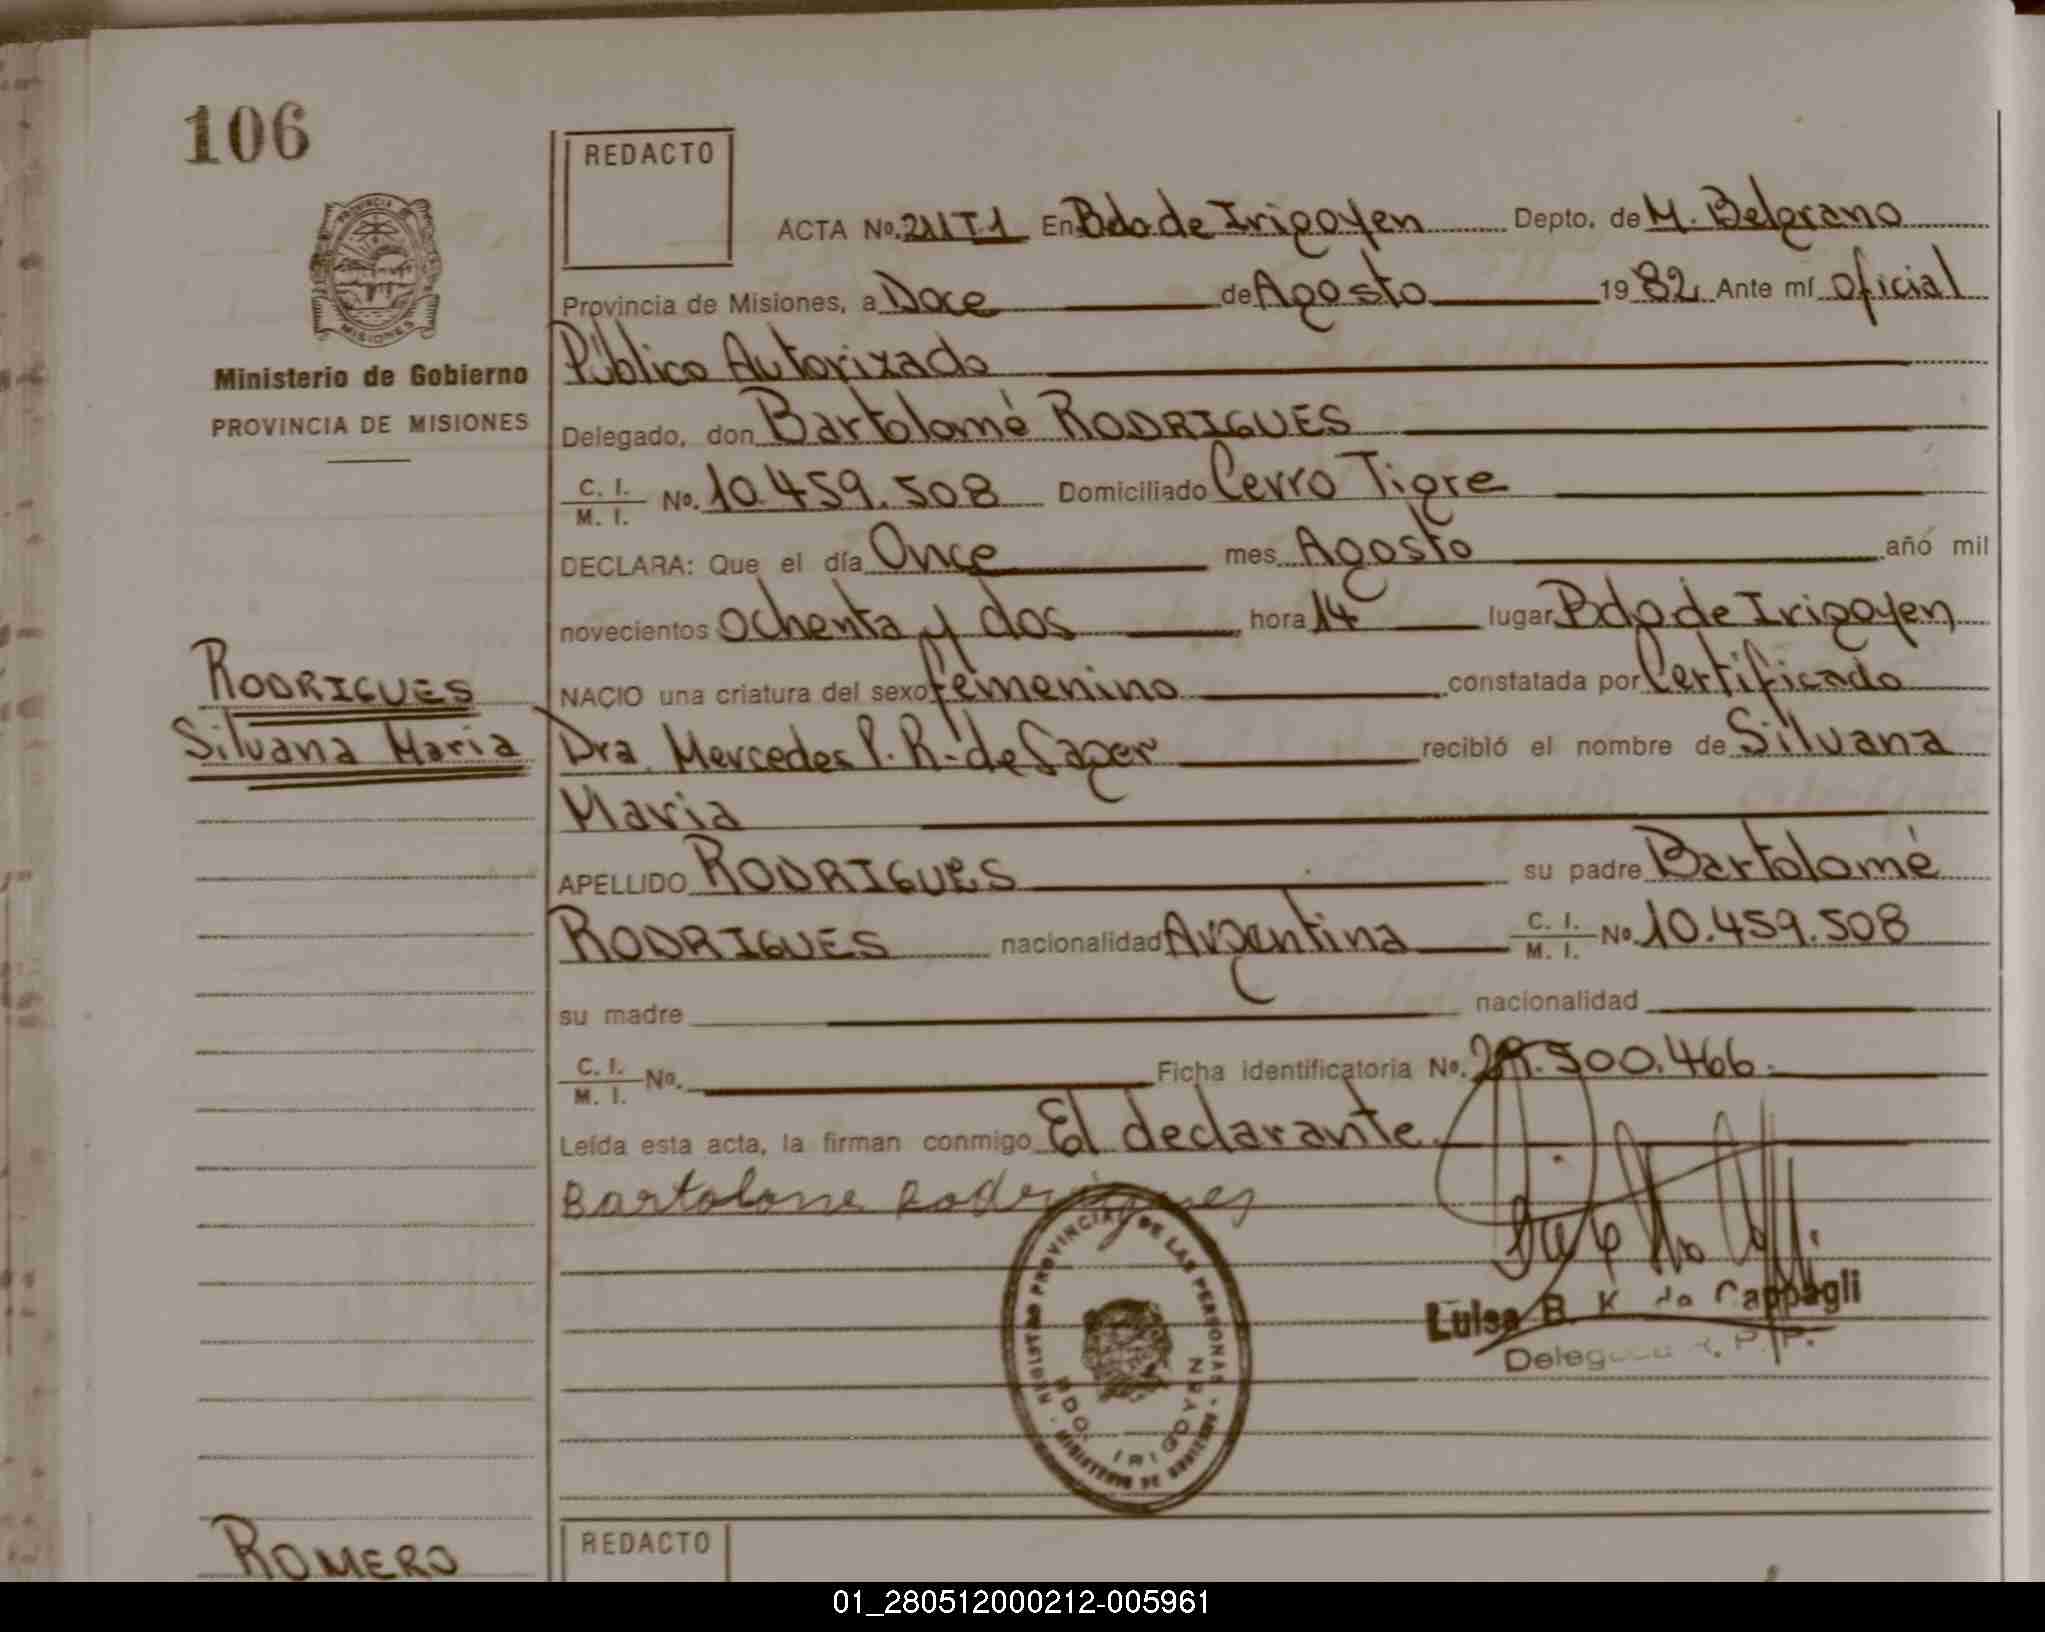 106
REDACTO
ACTA No. 211 T.1 En Bdo de Irigoyen Depto. de M. Belgrano
PROVINCIA DE
MISIONES
Provincia de Misiones, a Doce de Agosto 1982 Ante mí oficial
Ministerio de Gobierno
PROVINCIA DE MISIONES
Público Autorizado
Delegado, don Bartolomé RODRIGUES
C. I.
M. I. No. 10.459.508 Domiciliado Cerro Tigre
DECLARA: Que el día Once mes Agosto año mil
novecientos ochenta y dos hora 14 lugar Bdo de Irigoyen
RODRIGUES
Silvana Maria
NACIO una criatura del sexo femenino constatada por Certificado
Dra. Mercedes P. R. de recibió el nombre de Silvana
Maria
APELLIDO RODRIGUES su padre Bartolomé
RODRIGUES nacionalidad Argentina C. I.
M. I. No. 10.459.508
su madre nacionalidad
C. I.
M. I. No. Ficha identificatoria No. .500.466.
Leída esta acta, la firman conmigo El declarante
Bartolome Rodrigues
REGISTRO PROVINCIAL DE LAS PERSONAS - MINISTERIO DE GOBIERNO -
BDO. IRIGOYEN
Luisa B. K. de Cappagli
Delegada R. P. P.
ROMERO
REDACTO
01_280512000212-005961